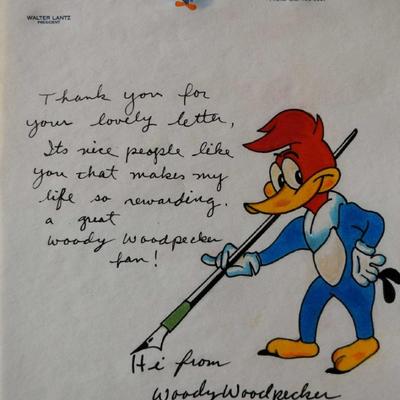 WALTER LANTZ
PRESIDENT
Thank you for
your lovely letter,
Its nice people like
you that makes my
life so rewarding.
a great
Woody Woodpecker
fan!
Hi from
Woody Woodpecker